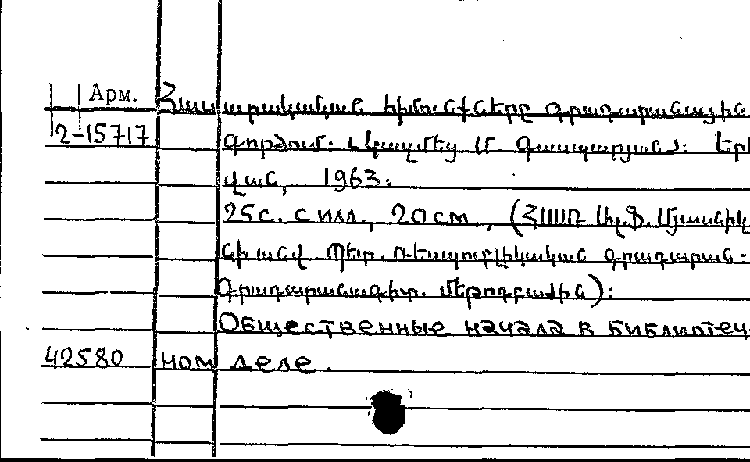 Арм. Հասարակական հիմունքները գրադարանային
2-15717 գործում. Կազմեց Մ. Գասպարյան: Երե
վան, 1963:
25с. с илл., 20см., (ՀՍՍՌ Ալ.Ֆ. Մյասնիկ
յանի անվ. պետ. ռեսպուբլիկական գրադարան.-
Գրադարանագիտ. մեթոդ. բաժին):
Общественные начала в библиотеч-
42580 ном деле.